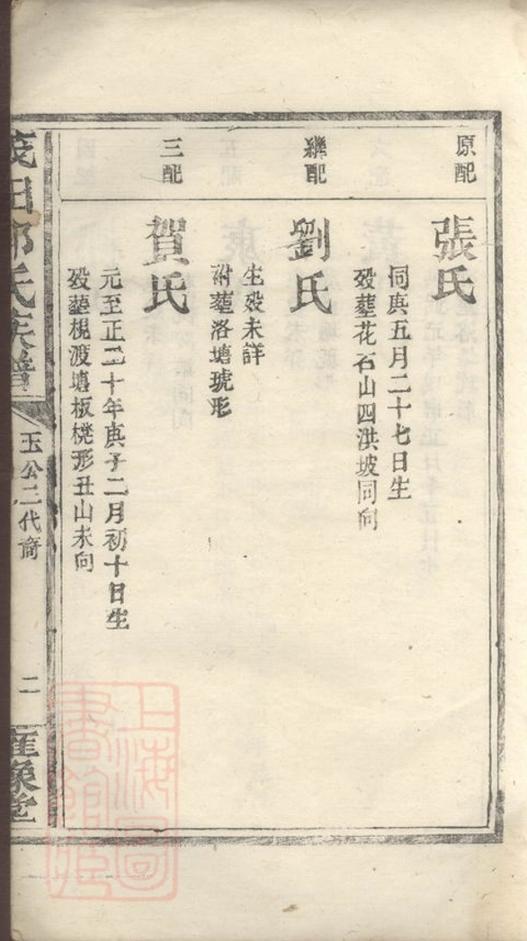 原配
張氏
同庚五月二十七日生
歿塟花石山四洪坡同向
繼配
劉氏
生歿未詳
附塟洛塘琥形
三配
賀氏
元至正二十年庚子二月初十日生
歿塟梘渡塘板櫈形丑山未向
田
氏族譜
玉公二代裔
二
上海圖
書館藏